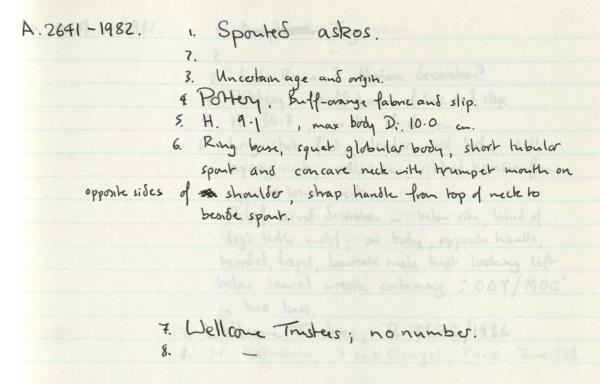 A.2641-1982. 1. Spouted askos.
2.
3. Uncertain age and origin.
4 Pottery. Buff-orange fabric and slip.
5. H. 9.1 , max body D: 10.0 cm.
6. Ring base, squat globular body, short tubular
spout and concave neck with trumpet mouth on
opposite sides of shoulder, strap handle from top of neck to
beside spout.
7. Wellcome Trustees; no number.
8. —